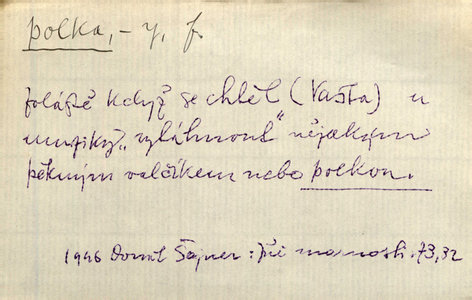 polka, -y, f.
zvláště když se chtěl (Vašta) u
muziky „vytáhnout" nějakým
pěkným valčíkem nebo polkou.
1946 Donát Šajner: Při marnosti. 73, 32